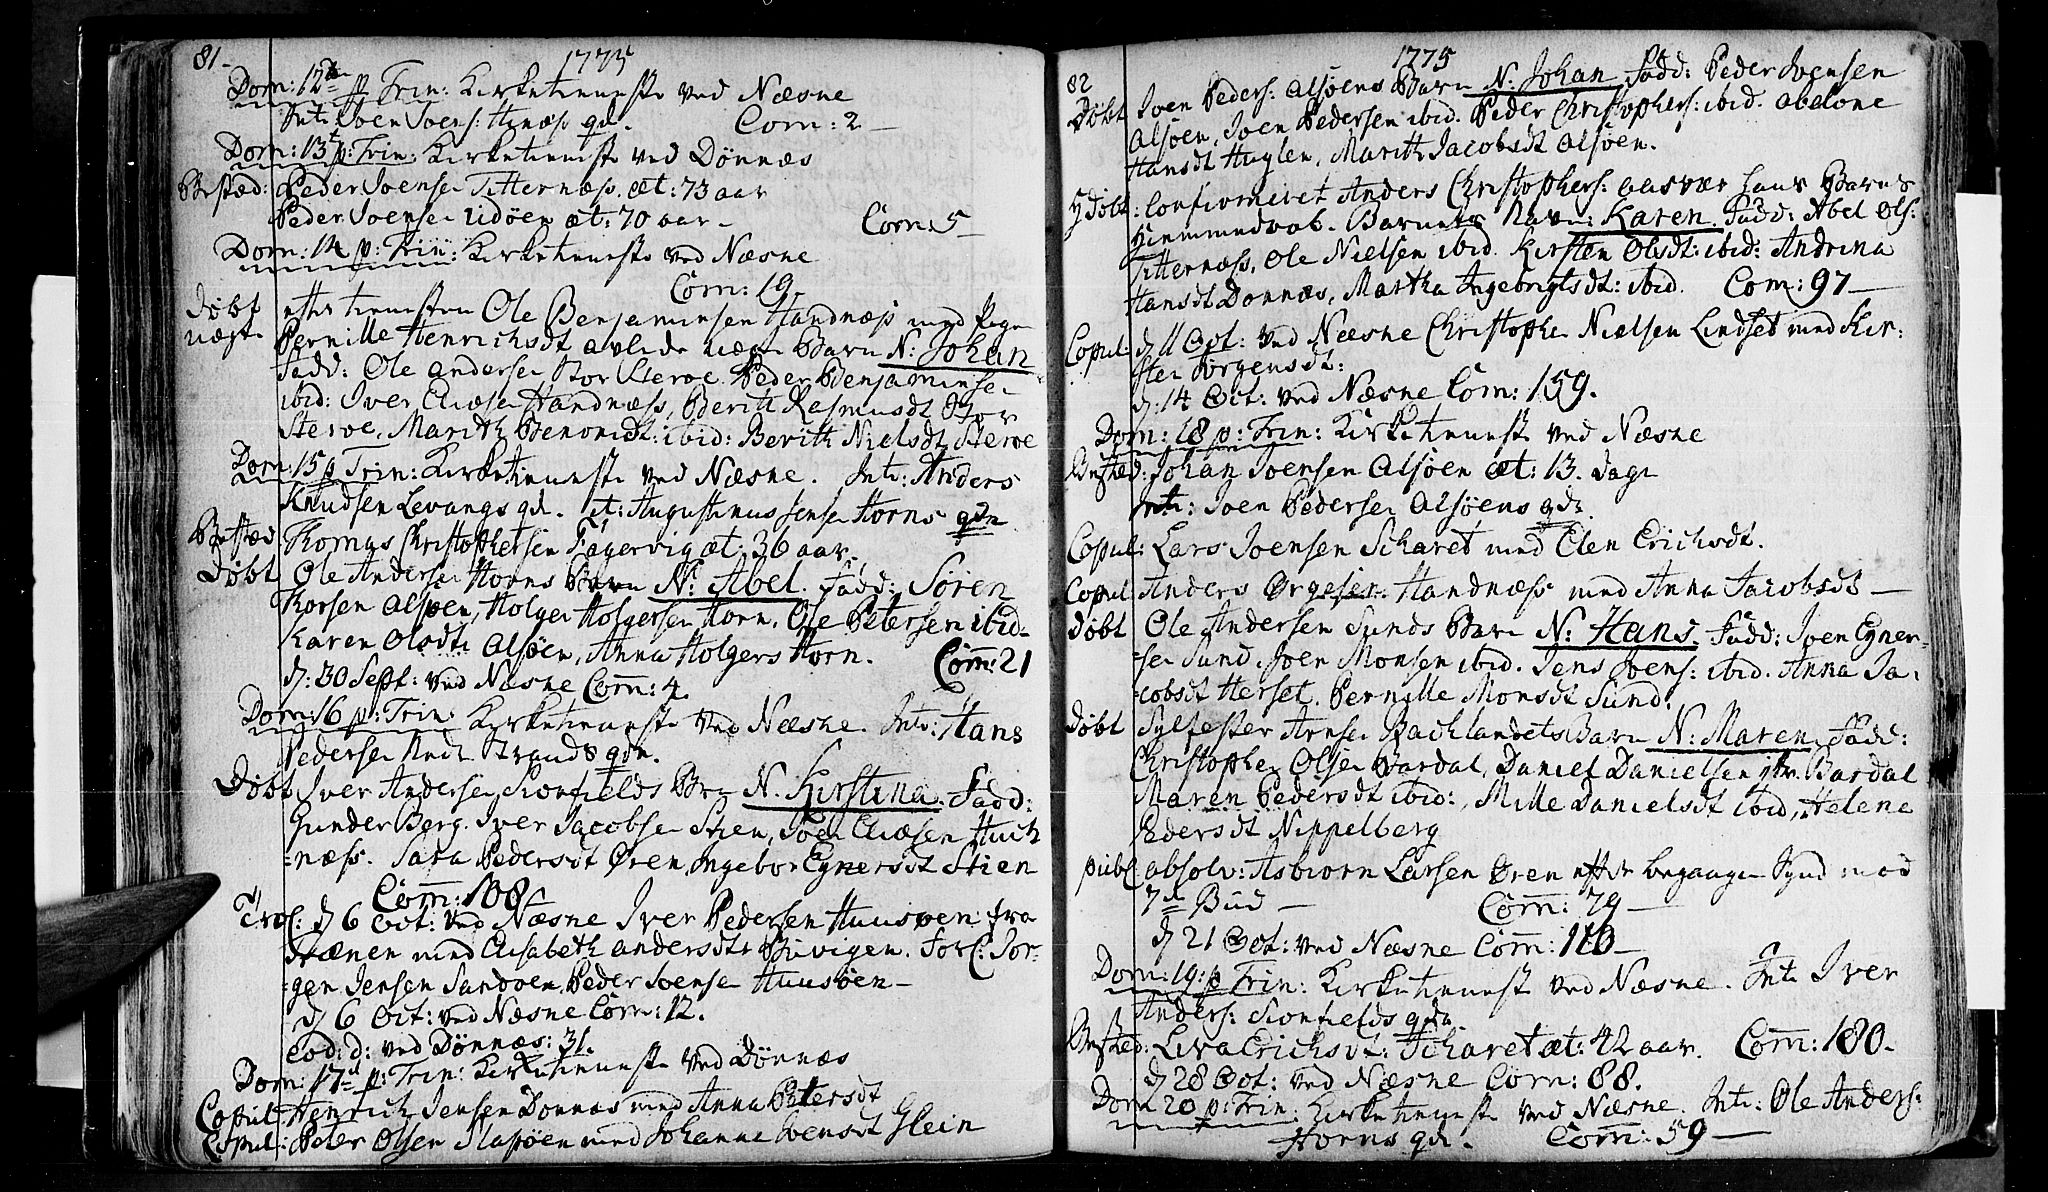 81.
1775
Dom: 12te p Trin: Kirketienniste ved Næsne
Int: Joen Joens: Hsnæss qd. Com: 2
Dom: 13t p: Trin: Kirketienniste ved Dönnæs
Bested: Peder Joensen Titternæss. æt: 73 aar
Peder Joensen Udöen æt: 70 aar Com: 5
Dom: 14 p: Trin: Kirketienniste ved Næsne
Com: 19.
Döbt uægte
efter tiennesten Ole Benjaminsen Handnæss med Pige
Pernille Henrichsdt avlede uægte Barn N: Johan
Fadd: Ole Andersen Stor Steroe. Peder Benjaminsen
ibid: Iver Eliæsen Handnæss, Berith Rasmusdt Stor
Steroe. Marith Benonidt: ibid: Berith Nielsdt Steroe
Dom: 15 p Trin: Kirketienniste ved Næsne. Int: Anders
Knudsen Levangs qd. it: Augustinus Jensen Horns qdn
Bested Thomas Christophersen Fagervig æt: 36 aar.
Döbt Ole Andersen Horns Barn N: Abel. Fadd: Sören
Thorsen Alsöen, Holger Holgersen Horn, Ole Petersen ibid
Karen Olsdtr Alsöen, Anna Holgers Horn. Com: 21
d: 30 Sept: ved Næsne Com: 4.
Dom: 16 p: Trin: Kirketienniste ved Næsne. Int: Hans
Pedersen Strands qdn.
Döbt Iver Andersen Skonfields Brn N. Kirstina. Fadd:
Gunder Berg. Iver Jacobsen Stien, Joen Eliæsen Huch
=næss. Sara Pedersdt Ören, Ingebor Egnersdt Stien
Com: 108
Trol: d 6 Oct: ved Næsne Iver Pedersen Huusöen fra
Trænen med Elisabeth Andersdtr Buvigen. Forl: Jör-
=gen Jensen Sandöen, Peder Joensen Huusöen
d 6 Oct: ved Næsne Com: 12.
Eod: d: ved Dönnæs: 31.
Dom: 17de p: Trin: Kirketienniste ved Dönnæs
Copul: Henrich Jensen Dönnæs med Anna Petersdt
Copul: Peter Olsen Slapöen med Johanna Joensdt Glein
82
1775
Döbt Joen Peders: Alsöens Barn N: Johan Fadd: Peder Joensen
Alsöen, Joen Pedersen ibid. Peder Christophers: ibid. Abelone
Hansdt Huglen, Marith Jacobsdt Alsöen.
Hdöbt: Confirmeret Anders Christophers: Aasvær hans Barns
hiemmedaab. Barnets Navn: Karen. Fadd: Abel Ols:
Titternæss, Ole Nielsen ibid. Kirsten Olsdt: ibid: Andrina
Hansdt Dönnæs, Martha Ingebrigtsdt: ibid. Com: 97
Copul: d 11 Oct: ved Næsne Christopher Nielsen Lindset med Kir:
sten Jörgensdt:
d: 14 Oct: ved Næsne Com: 159.
Dom: 18 p: Trin: Kirketienniste ved Næsne
Bested: Johan Joensen Alsöen æt: 13. dage
Int: Joen Pedersen Alsöens qdn.
Copul: Lars Joensen Skaret med Elen Erichsdt.
Copul Anders Örgesen Handnæss med Anna Jacobsdt
Döbt Ole Andersen Sunds Barn N: Hans. Fadd: Iven Egner-
=sen Sund, Joen Monsen ibid. Jens Joens: ibid. Anna Ja-
=cobsdt Herset. Pernille Monsdt Sund.
Döbt Sylfester Arnsen Backlandets Barn N: Maren. Fadd:
Christopher Olsen Bardal, Daniel Danielsen ytr. Bardal
Maren Pedersdt ibid:, Mille Danielsdt ibid, Helene
Edersdt Nippelberg
publ absolv: Asbiorn Larsen Ören efter begaangen Synd mod
7de Bud Com: 79
d 21 Oct: ved Næsne Com: 110
Dom: 19: p Trin: Kirketienniste ved Næsne. Int: Iver
Anders: Skonfields qdn.
Bested: Liva Erichsdt: Skaret æt: 42 aar. Com: 180.
d 28 Oct: ved Næsne Com: 88.
Dom 20 p: Trin: Kirketienniste ved Næsne. Int: Ole Anders:
Horns qdn. Com: 59